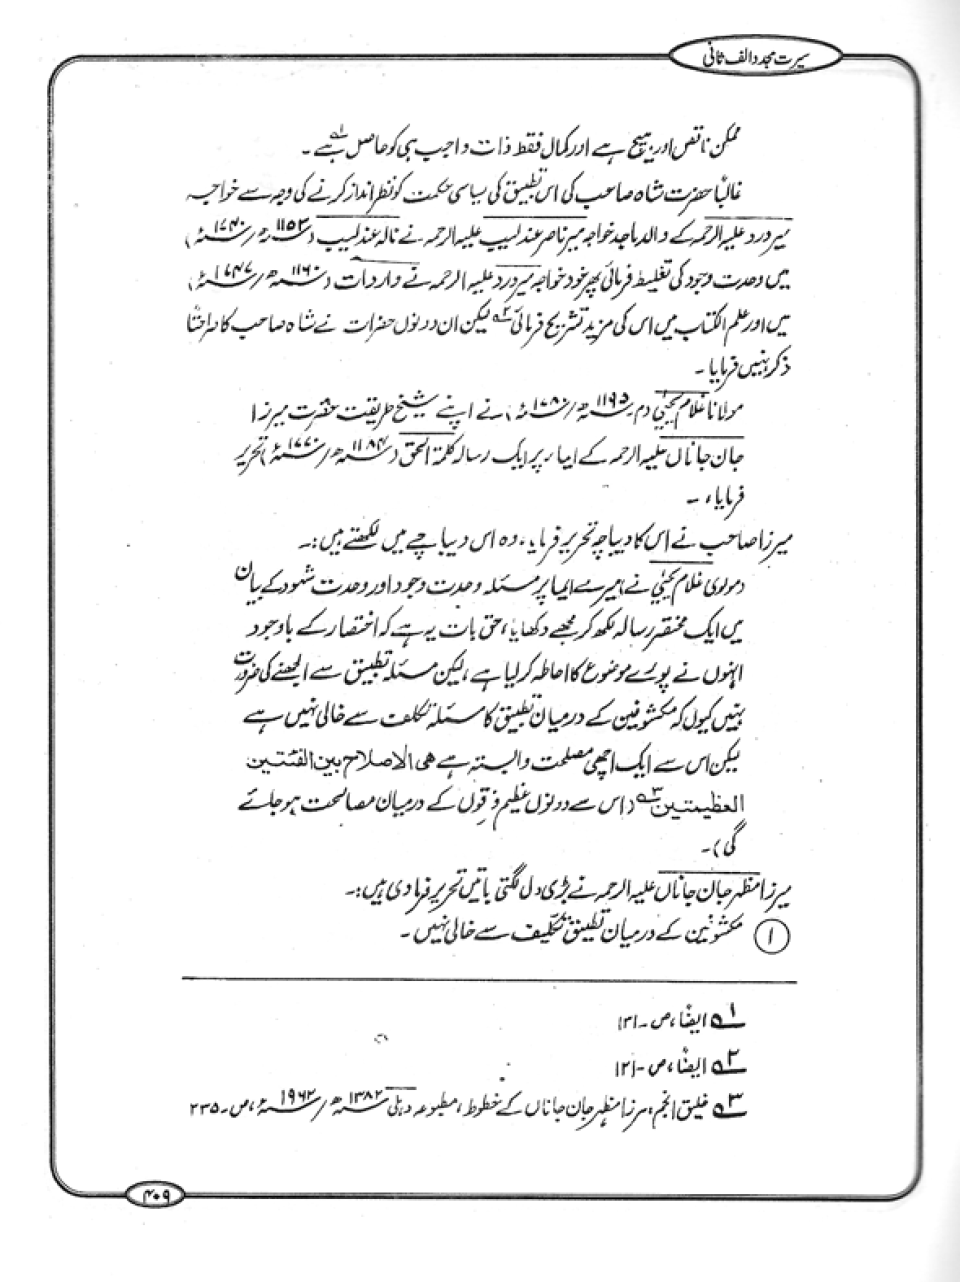 سیرت مجدد الف ثانی
ممکن ناقص اور ہیچ ہے اور کمال فقط ذات واجب ہی کو حاصل ہے۱؎۔
غالباً حضرت شاہ صاحب کی اس تطبیق کی سیاسی حکمت کو نظر انداز کرنے کی وجہ سے خواجہ
میر درد علیہ الرحمہ کے والد ماجد خواجہ میر ناصر عندلیب علیہ الرحمہ نے نالہ عندلیب (۱۱۵۳ھ/۱۷۴۰ء)
میں وحدت وجود کی تغلیط فرمائی پھر خود خواجہ میر درد علیہ الرحمہ نے واردات (۱۱۶۰ھ/۱۷۴۷ء)
میں اور علم الکتاب میں اس کی مزید تشریح فرمائی۲؎ لیکن ان دونوں حضرات نے شاہ صاحب کا صراحتاً
ذکر نہیں فرمایا۔
مولانا غلام یحییٰ (م۔۱۱۹۵ھ/۱۷۸۰ء) نے اپنے شیخ طریقت حضرت میرزا
جان جاناں علیہ الرحمہ کے ایما پر ایک رسالہ کلمۃ الحق (۱۱۸۴ھ/۱۷۷۰ء) تحریر
فرمایا، ۔
میرزا صاحب نے اس کا دیباچہ تحریر فرمایا، وہ اس دیباچے میں لکھتے ہیں:۔
(مولوی غلام یحییٰ نے) میرے ایما پر مسئلہ وحدت وجود اور وحدت شہود کے بیان
میں ایک مختصر رسالہ لکھ کر مجھے دکھایا، حق بات یہ ہے کہ اختصار کے باوجود
انہوں نے پورے موضوع کا احاطہ کر لیا ہے، لیکن مسئلہ تطبیق سے الجھنے کی ضرورت
نہیں کیوں کہ مکشوفین کے درمیان تطبیق کا مسئلہ تکلف سے خالی نہیں ہے
لیکن اس سے ایک اچھی مصلحت وابستہ ہے ھی الاصلاح بین الفئتین
العظیمتین۳؎ (اس سے دونوں عظیم فرقوں کے درمیان مصالحت ہو جائے
گی)۔
میرزا مظہر جان جاناں علیہ الرحمہ نے بڑی دل لگتی باتیں تحریر فرما دی ہیں:۔
۱ مکشوفین کے درمیان تطبیق تکلیف سے خالی نہیں۔
۱؎ ایضاً، ص۔۱۳۱
۲؎ ایضاً، ص۔۱۲۱
۳؎ خلیق انجم: مرزا مظہر جان جاناں کے خطوط، مطبوعہ دہلی ۱۳۸۲ھ/۱۹۶۲ء، ص۔۲۳۵
۴۰۹